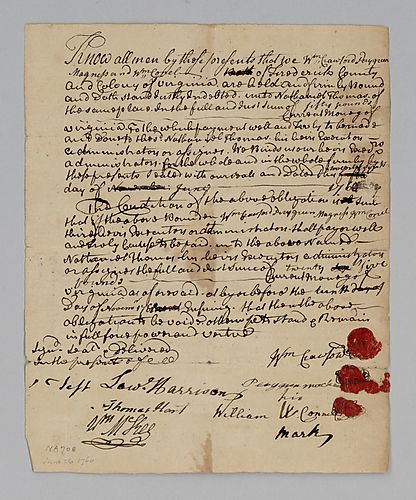 Know all men by these presents that we Wm Craford Perygrun
Magness and Wm Connel of Frederick County
and Colony of Virginia are held and firmly Bound
and Doth Stand Justly Indebted unto Nathaniel Thomas of
the same place. In the full and Just Sum of fifty pounds
Current Money of
Virginia To the which payment well and truly to be made
and done to the sd. Nathaniel Thomas his heirs Executors
administrators or assignes. We Binds us our heirs Exrs
administrators for the whole and in the whole firmly by
these presents Sealed with our seals and Dated this
day of June 1760
This Condition of the above obligation is such
that if the above Bounden Wm Craford Perygrun Magness Wm Connel
their heirs Executors or administrators shall pay or well
and truly Cause to be paid unto the above Named
Nathaniel Thomas his heirs Executors administrators
or assignes the full and Just Sum of twenty five
pounds Current money of
Virginia as aforesaid at or before the tenth
Day of Insuing that then the above
obligation to be void otherwise to stand & Remain
in full force power and vertue
Signd Seald & Delivered
In the presents of
Wm Craford
Test Lawe. Harrison
his
Thomas Hart
William W Connel
Wm McKee
mark
NA708
June 26 1760